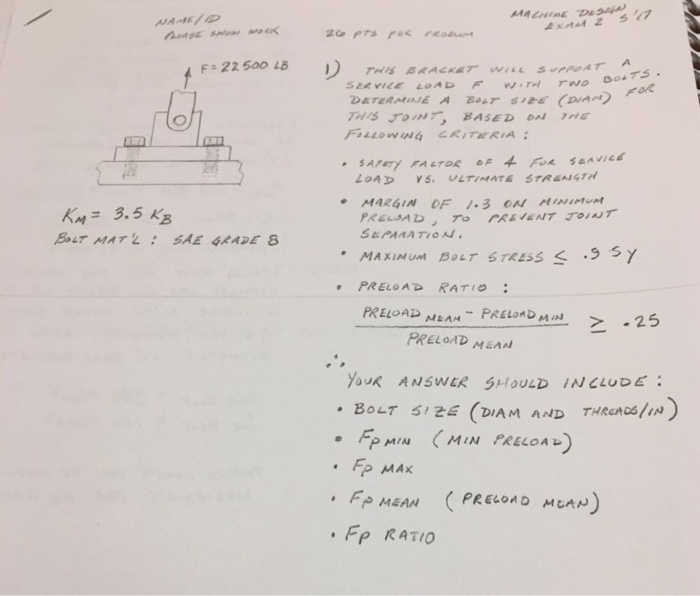 NAME/ID
PLEASE SHOW WORK
26 PTS PER PROBLEM
MACHINE DESIGN
EXAM 2 S'17
F = 22 500 LB
KM = 3.5 KB
BOLT MAT'L : SAE GRADE 8
1) THIS BRACKET WILL SUPPORT A
SERVICE LOAD F WITH TWO BOLTS.
DETERMINE A BOLT SIZE (DIAM) FOR
THIS JOINT, BASED ON THE
FOLLOWING CRITERIA :
• SAFETY FACTOR OF 4 FOR SERVICE
LOAD VS. ULTIMATE STRENGTH
• MARGIN OF 1.3 ON MINIMUM
PRELOAD, TO PREVENT JOINT
SEPARATION.
• MAXIMUM BOLT STRESS ≤ .9 Sy
• PRELOAD RATIO :
PRELOAD MEAN - PRELOAD MIN
≥ .25
PRELOAD MEAN
∴
YOUR ANSWER SHOULD INCLUDE :
• BOLT SIZE (DIAM AND THREADS/IN)
• Fp MIN (MIN PRELOAD)
• Fp MAX
• Fp MEAN (PRELOAD MEAN)
• Fp RATIO